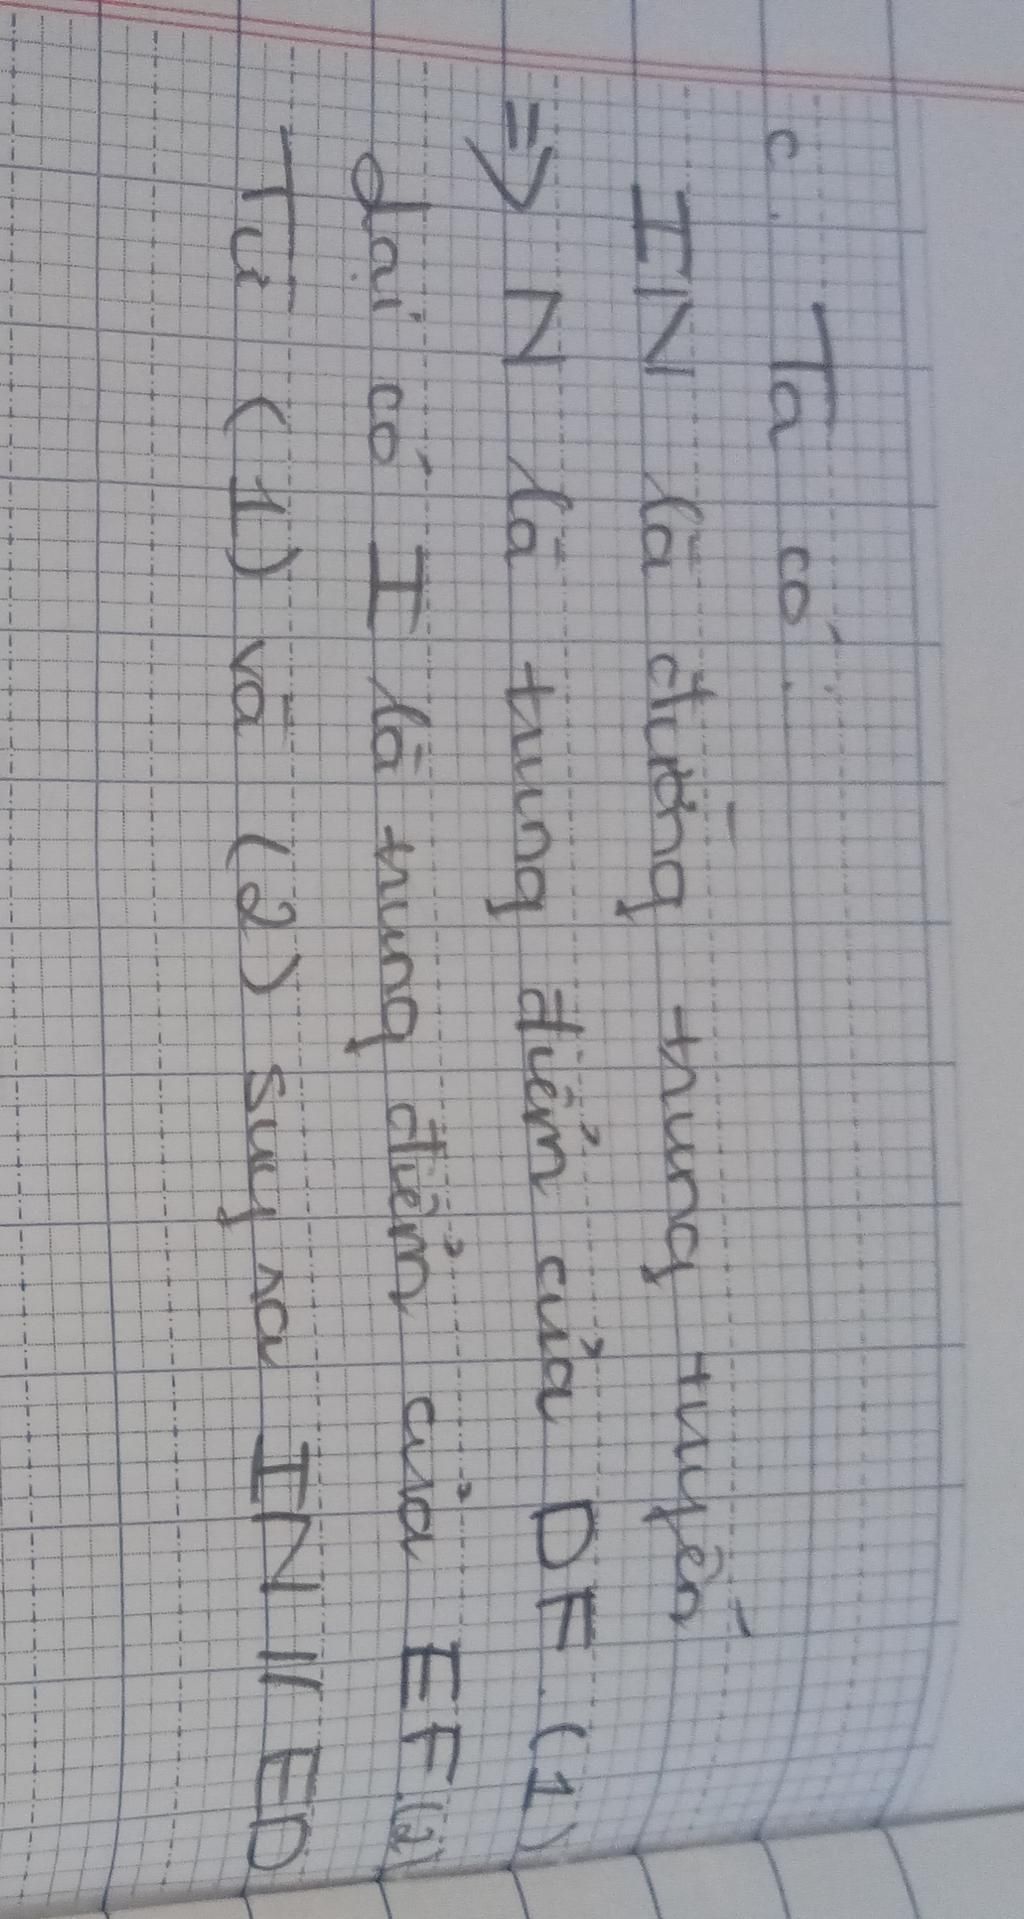 c. Ta có:
IN là đường trung tuyến
=> N là trung điểm của DF (1)
lại có I là trung điểm của EF (2)
Từ (1) và (2) suy ra IN // ED